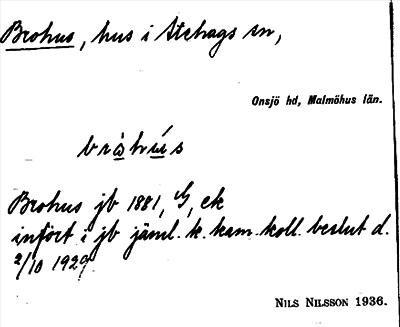 Brohus, hus i Stehags sn,
Onsjö hd, Malmöhus län.
bràhús
Brohus jb 1881, G, ek
infört i jb jäml. k. kam. koll. beslut d.
2/10 1929.
NILS NILSSON 1936.